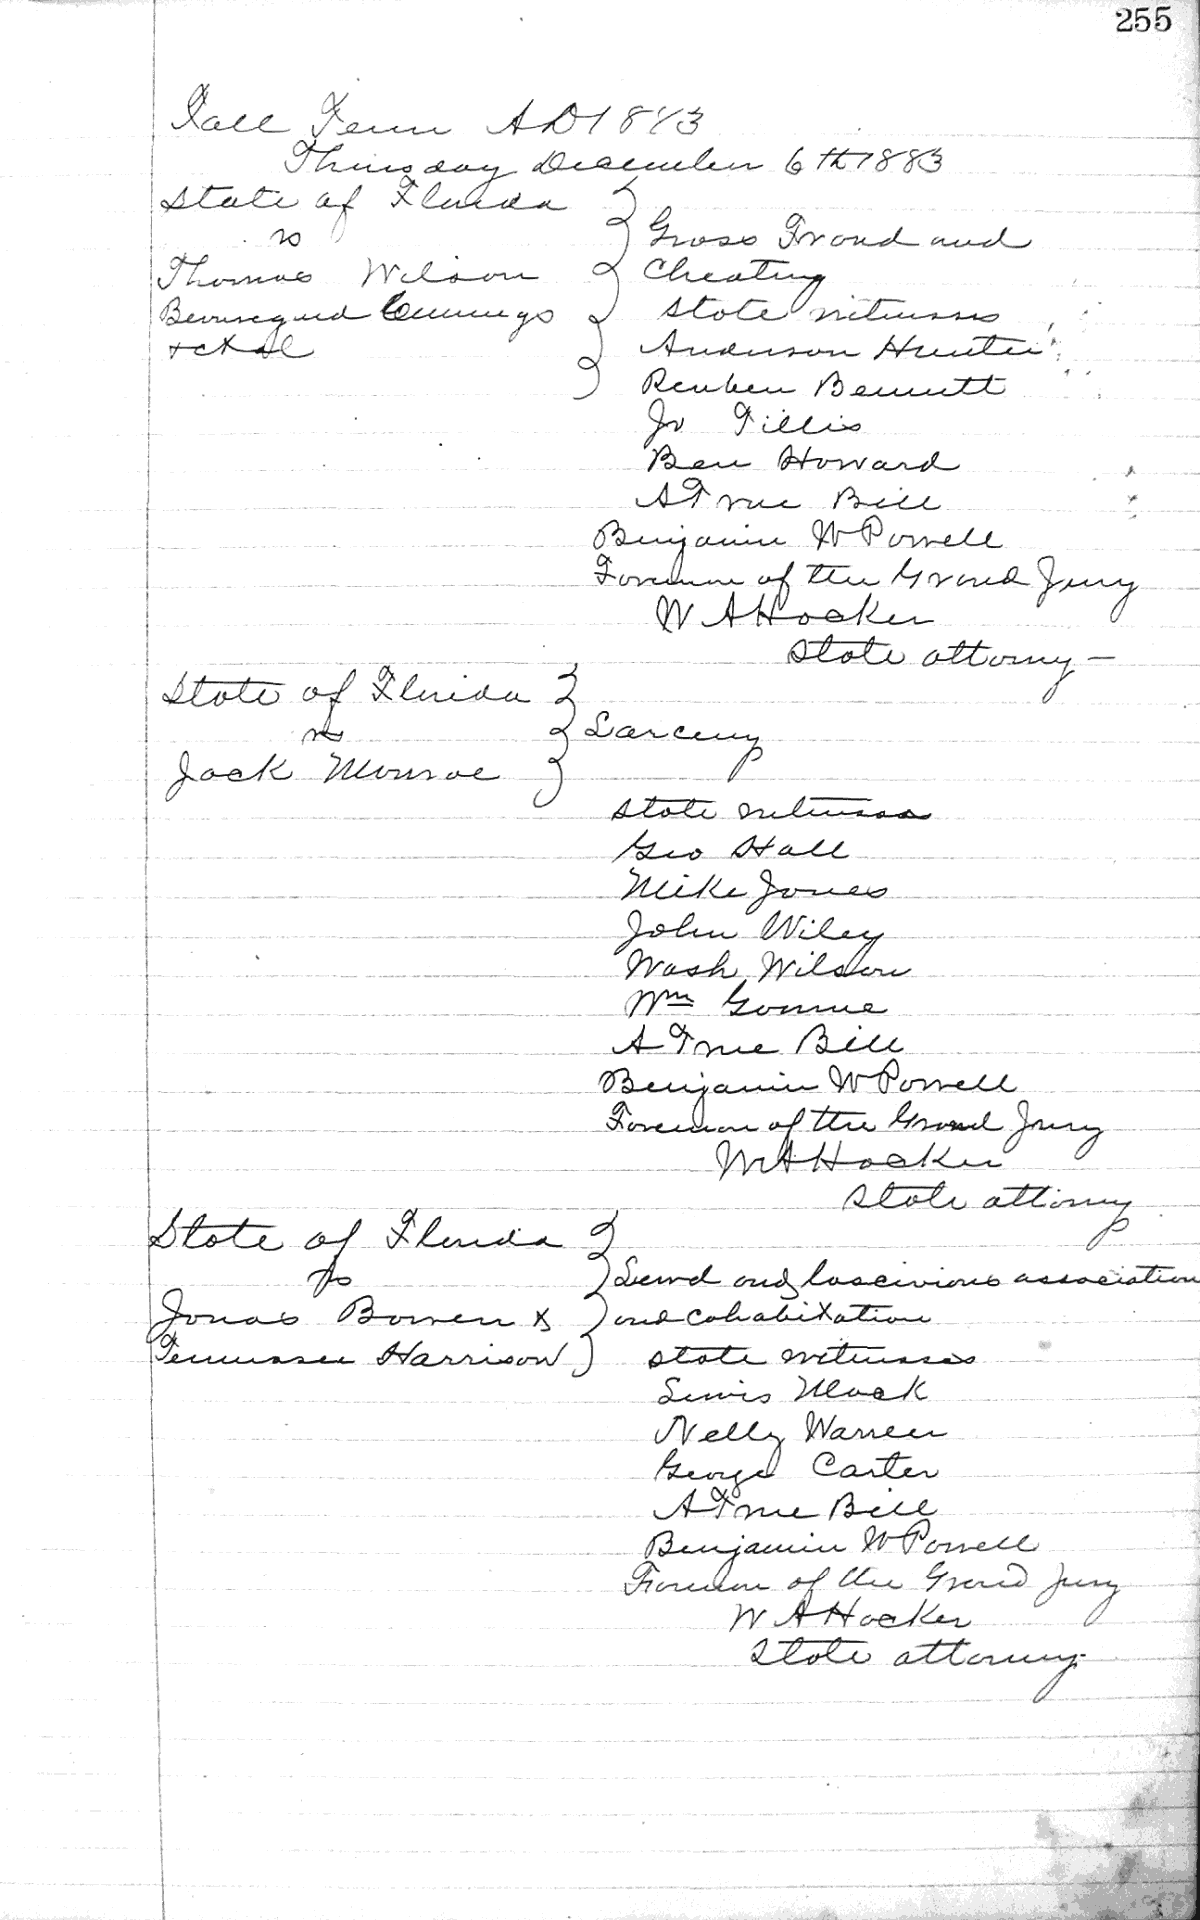 255
Fall Term AD 1883
Thursday December 6th 1883
State of Florida
vs
Thomas Wilson
Beauregard Cummings
et al
Gross Fraud and
Cheating
State witnesses
Anderson Hunter
Reuben Bennett
Jr Tillis
Ben Howard
A True Bill
Benjamin W Powell
Foreman of the Grand Jury
W A Hocker
State attorny
State of Florida
vs
Jack Monroe
Larceny
State witnesses
Geo Hall
Mike Jones
John Wiley
Wash Wilson
Wm
A True Bill
Benjamin W Powell
Foreman of the Grand Jury
W A Hocker
State attorny
State of Florida
vs
Jonas Bowen &
Tennessee Harrison
Lewd and lascivious association
and cohabitation
State witnesses
Lewis Mack
Nelly Warren
George Carter
A True Bill
Benjamin W Powell
Foreman of the Grand Jury
W A Hocker
State attorny